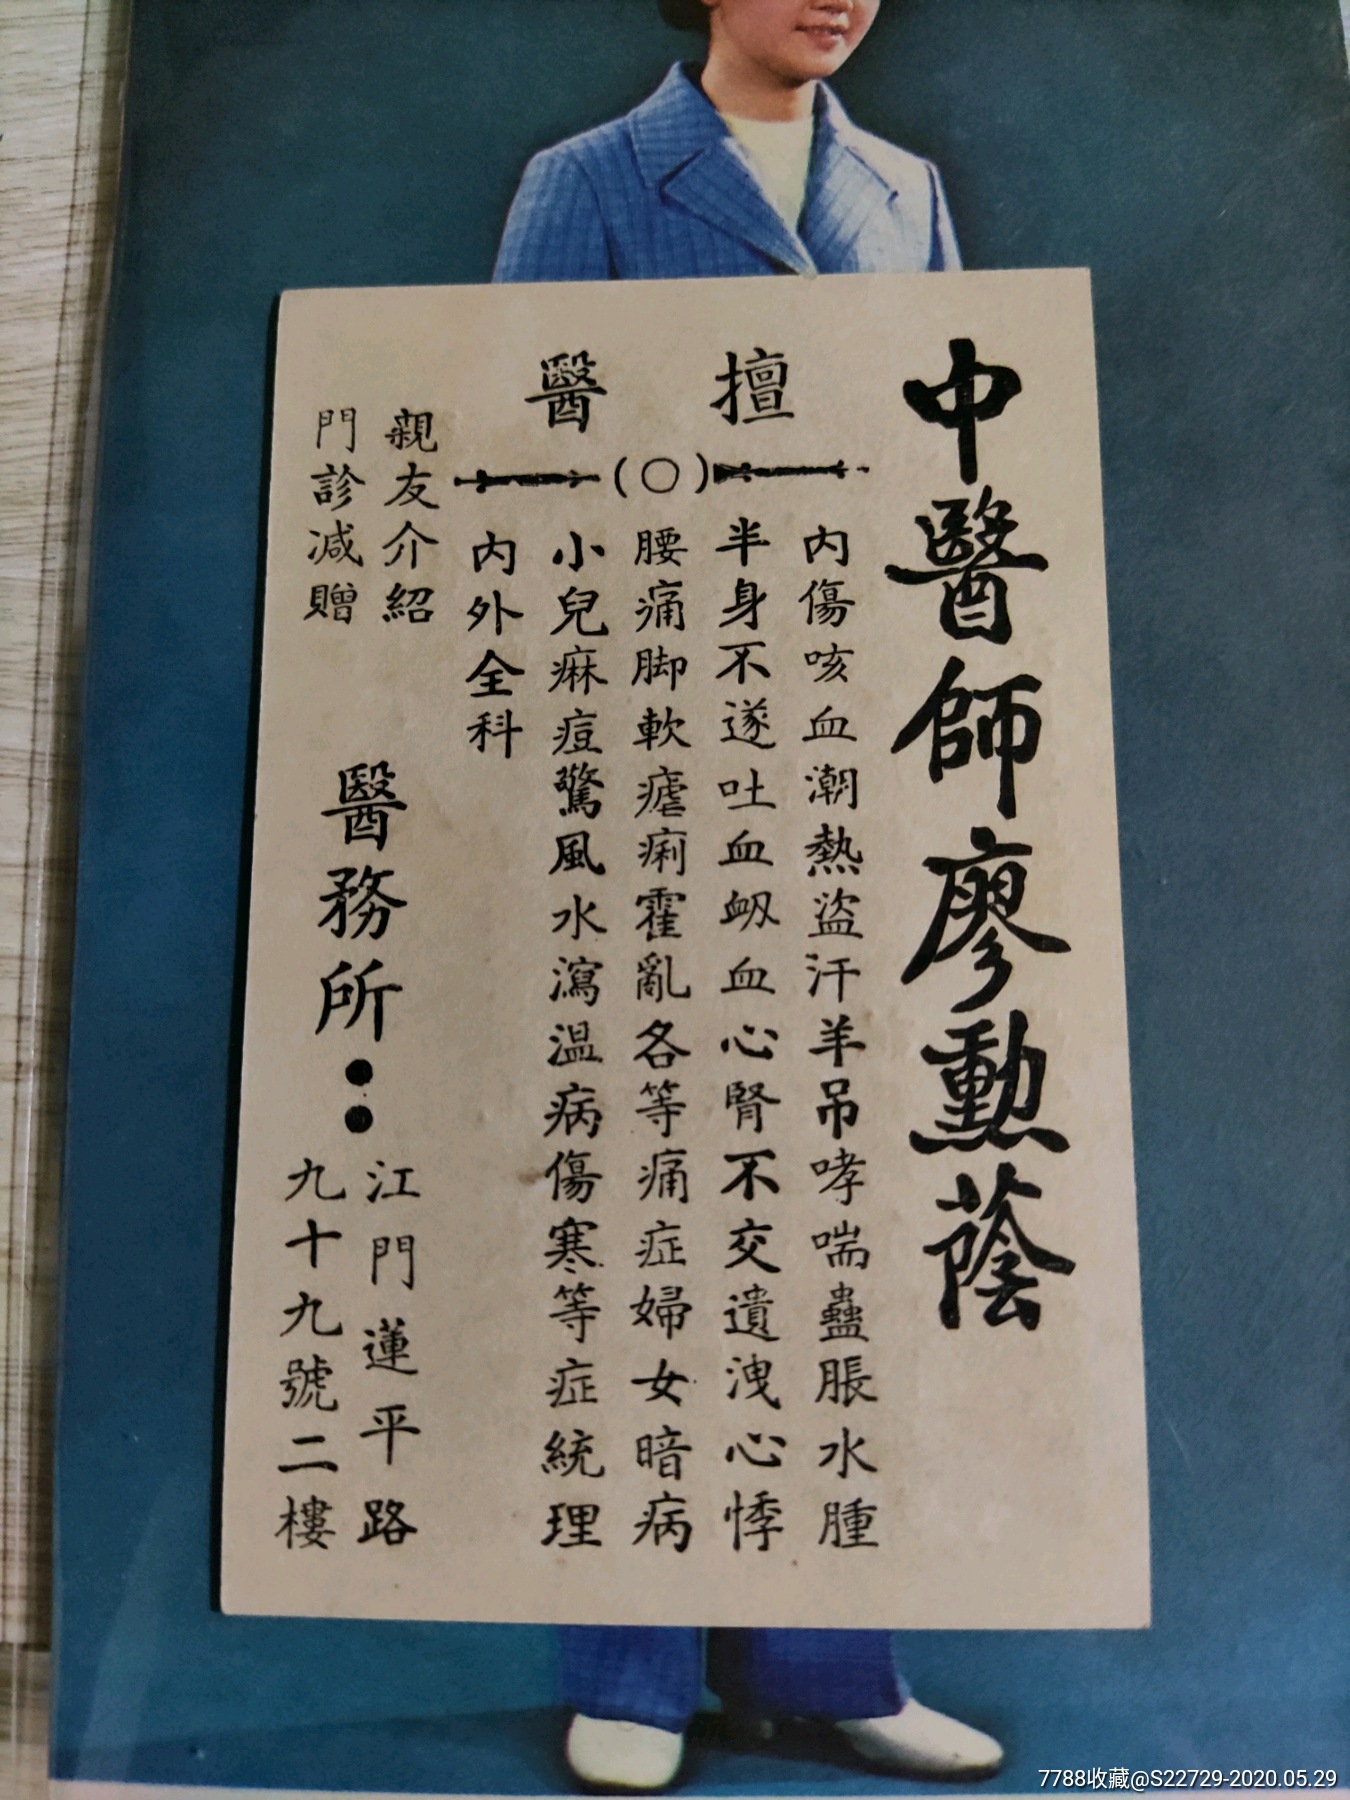 中醫師廖勲蔭
擅醫
(○)
内傷咳血潮熱盜汗羊吊哮喘蠱脹水腫
半身不遂吐血衂血心腎不交遺洩心悸
腰痛脚軟瘧痢霍亂各等痛症婦女暗病
小兒痳痘驚風水瀉温病傷寒等症統理
内外全科
親友介紹
門診减贈
醫務所:
江門蓮平路
九十九號二樓
7788收藏@S22729-2020.05.29